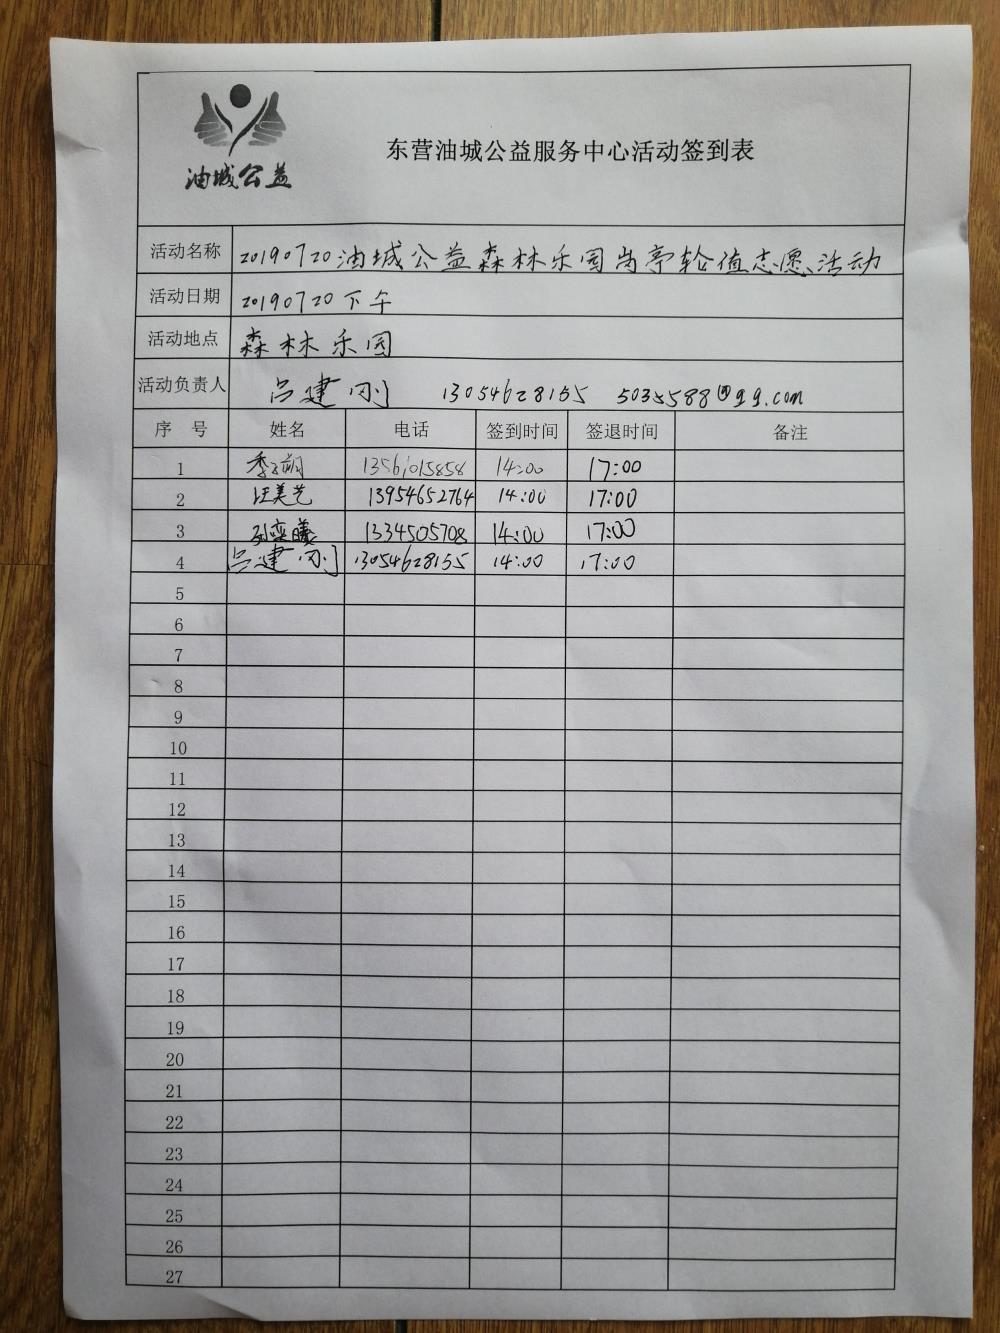 油城公益
东营油城公益服务中心活动签到表
活动名称 20190720油城公益森林乐园岗亭轮值志愿活动
活动日期 20190720下午
活动地点 森林乐园
活动负责人 吕建刚 13054628155 5035588@qq.com
序 号 姓名 电话 签到时间 签退时间 备注
1 13561015858 14:00 17:00
2 汪美艺 13954652764 14:00 17:00
3 1334505708 14:00 17:00
4 吕建刚 13054628155 14:00 17:00
5
6
7
8
9
10
11
12
13
14
15
16
17
18
19
20
21
22
23
24
25
26
27